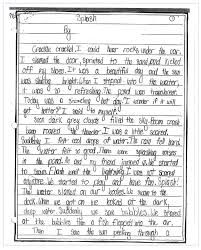 Splash
By
Crackle crackle! I could hear rocks under the car.
I slammed the door, sprinted to the sand and kicked
off my shoes. It was a beautiful day and the sun
was shining bright. When I stepped into the water,
it was so refreshing. The pond was
Today was a hot day. "I wonder if it will
get hotter?" I said to myself.
Soon dark grey clouds filled the sky. Boom crash
boom roared the thunder. I was a little scared.
Suddenly I felt cool drops of water. The rain felt hard.
The water felt so good. There were splashing noises
in the pond. Me and my friend jumped
to swim. Flash went the lightning. I was not scared
anymore. We started to play and have fun. Splash!
The water splashed on our bodies. We swam to the
dock. When we got on we looked at the dark,
deep water. Suddenly we saw bubbles. We stared
at the bubbles and a fish flopped into the air.
Then I saw the sun peeking through a